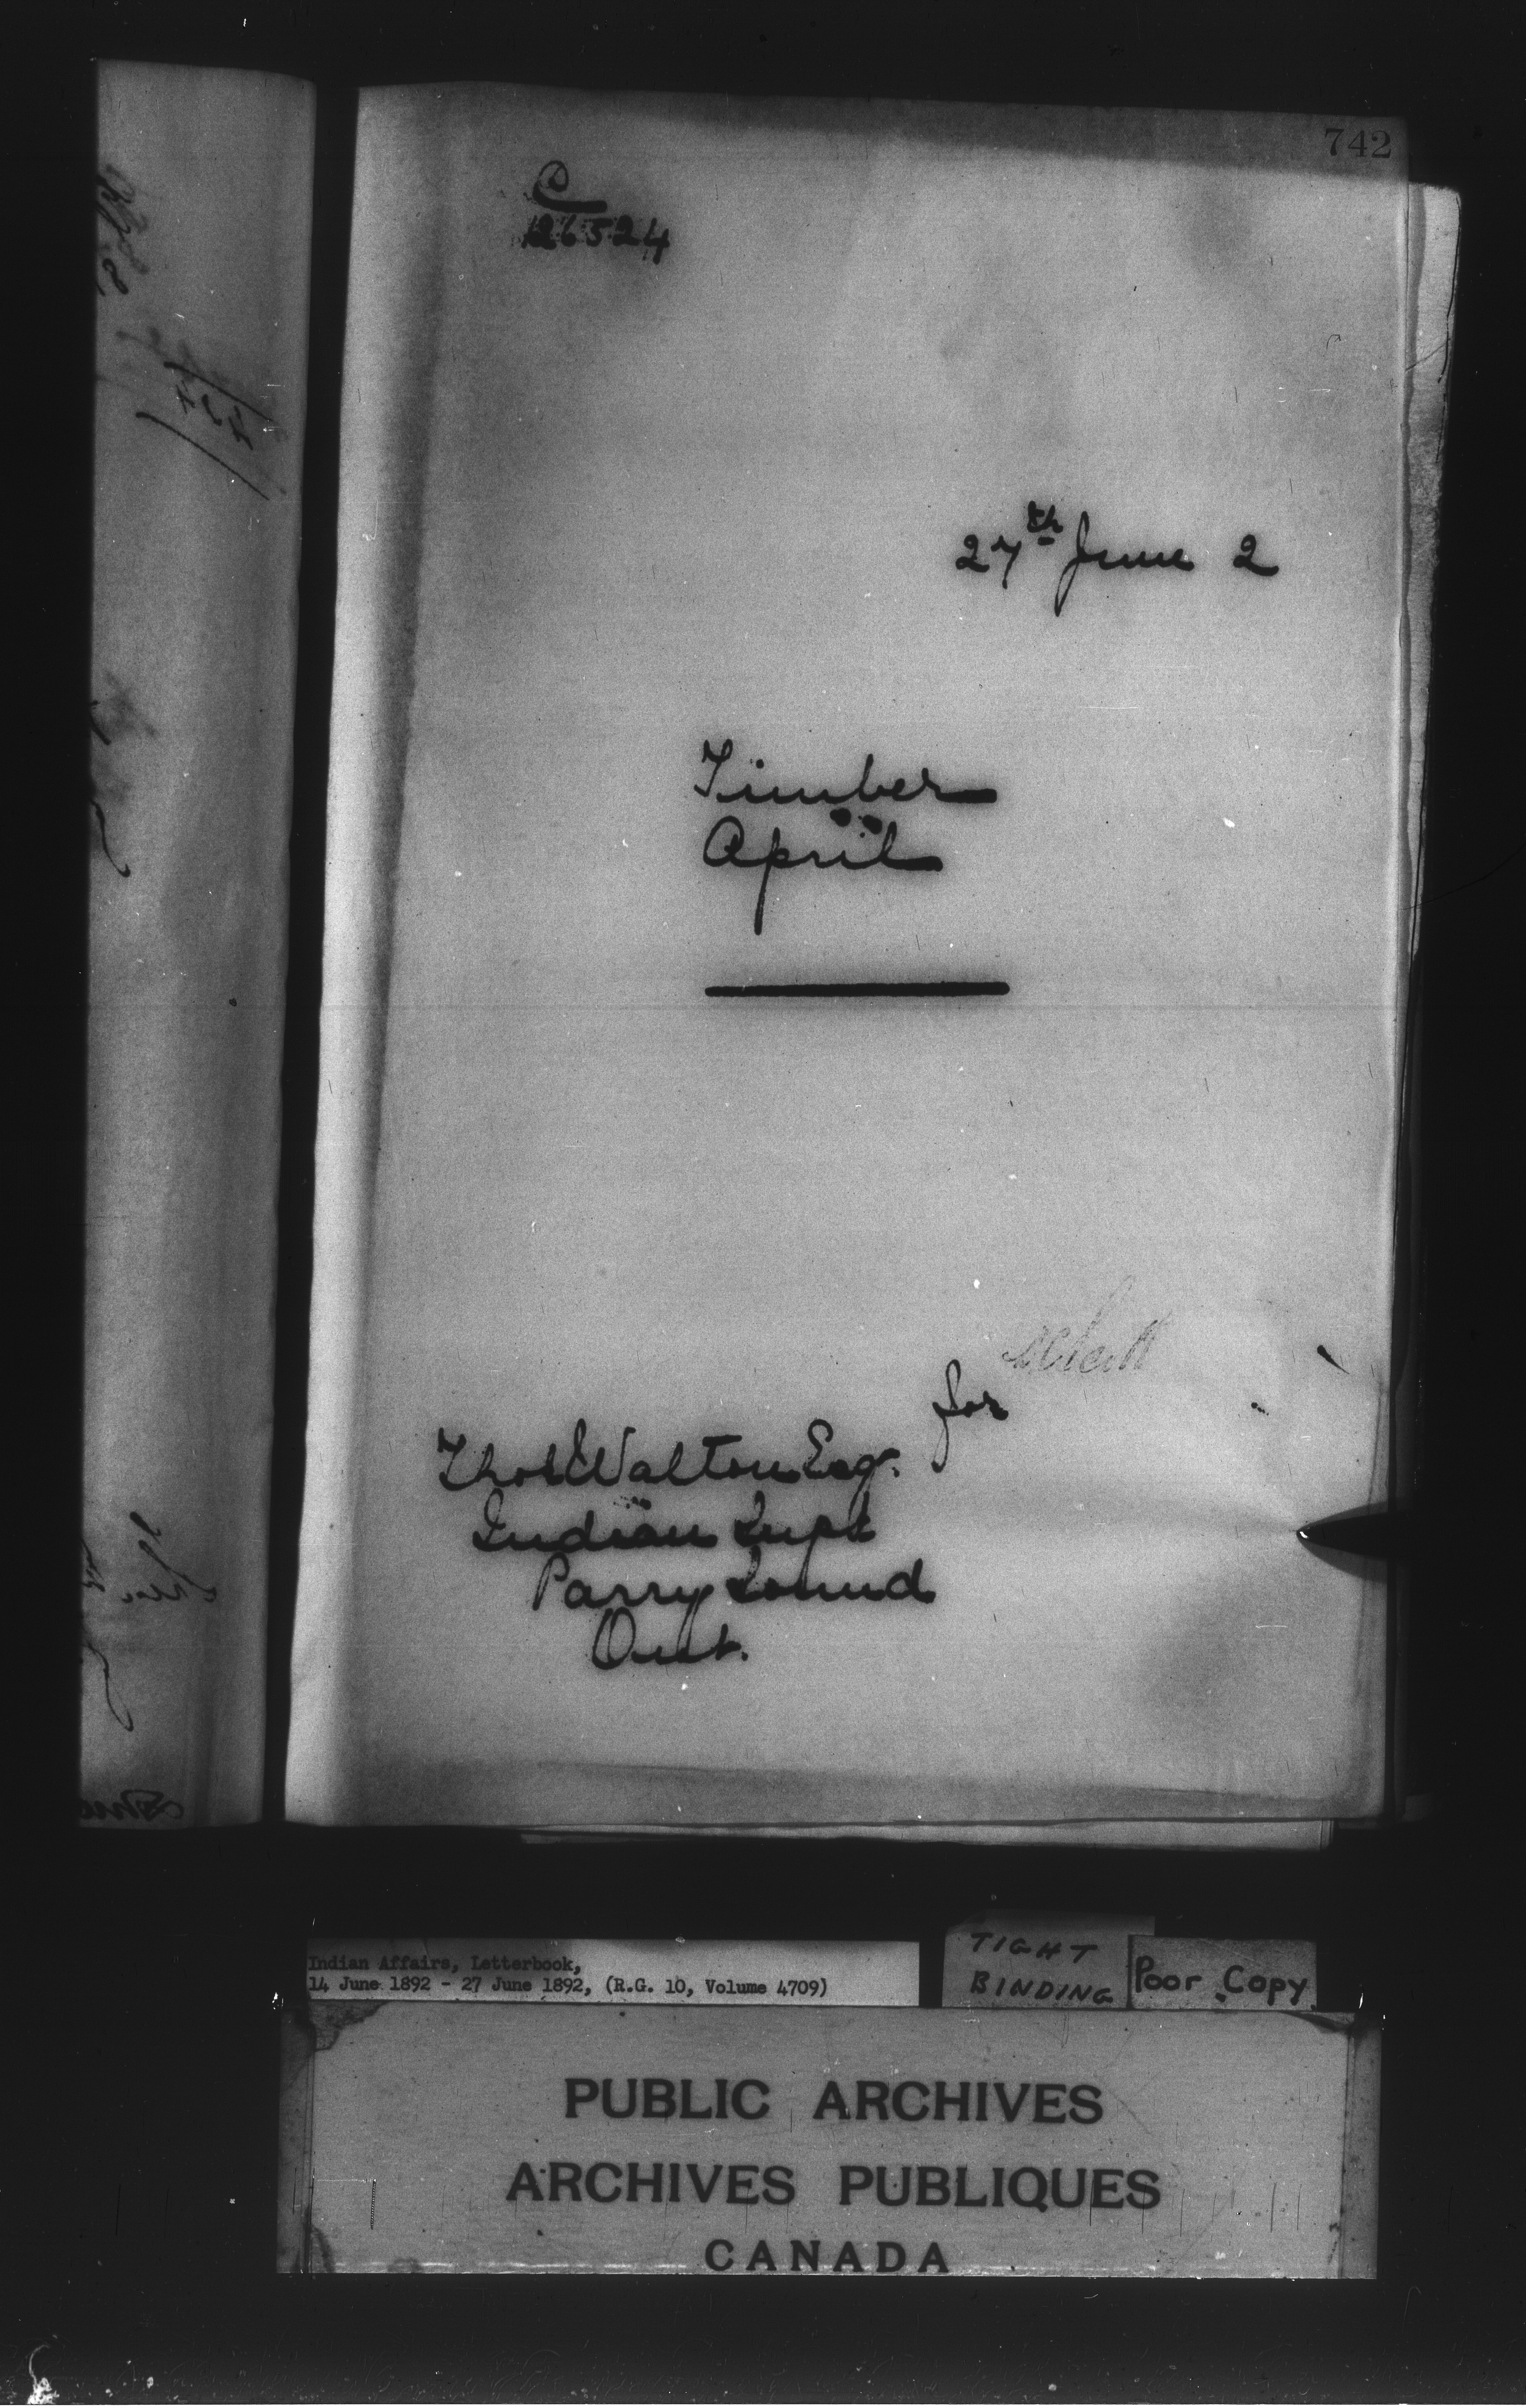 742
C
126524
27th June 2
Timber
April
for
Thos Walton Esq.
Indian Supt
Parry Sound
Ont.
Indian Affairs, Letterbook,
14 June 1892 - 27 June 1892, (R.G. 10, Volume 4709)
TIGHT
BINDING
Poor Copy
PUBLIC ARCHIVES
ARCHIVES PUBLIQUES
CANADA